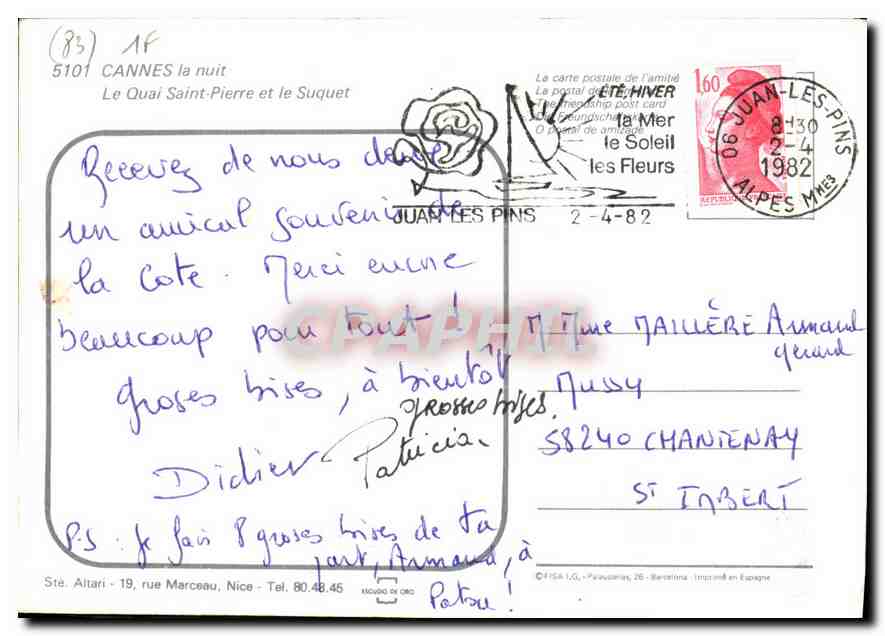 (83) 1F
5101 CANNES la nuit
Le Quai Saint-Pierre et le Suquet
La carte postale de l'amitié
La postal de
The friendship post card
O postal de amizade
ÉTÉ, HIVER
la Mer
le Soleil
les Fleurs
JUAN LES PINS 2-4-82
1,60
06 JUAN-LES-PINS
8H30
2-4
1982
ALPES MMES
Recevez de nous deux
un amical souvenir de
la Cote. Merci encore
beaucoup pour tout !
groses bises, à bientôt
grosses bises.
Didier Patricia.
P.S : Je fais 8 groses bises de ta
part, Armand, à
Patou !
M Mme MAILLÈRE Armand
gérard
Mussy
58240 CHANTENAY
ST IMBERT
CPAPHIL
Ste. Altari - 19, rue Marceau, Nice - Tel. 80.48.45
ESCUDO DE ORO
©FISA I.G. - Palaudarias, 26 - Barcelona - Imprimé en Espagne